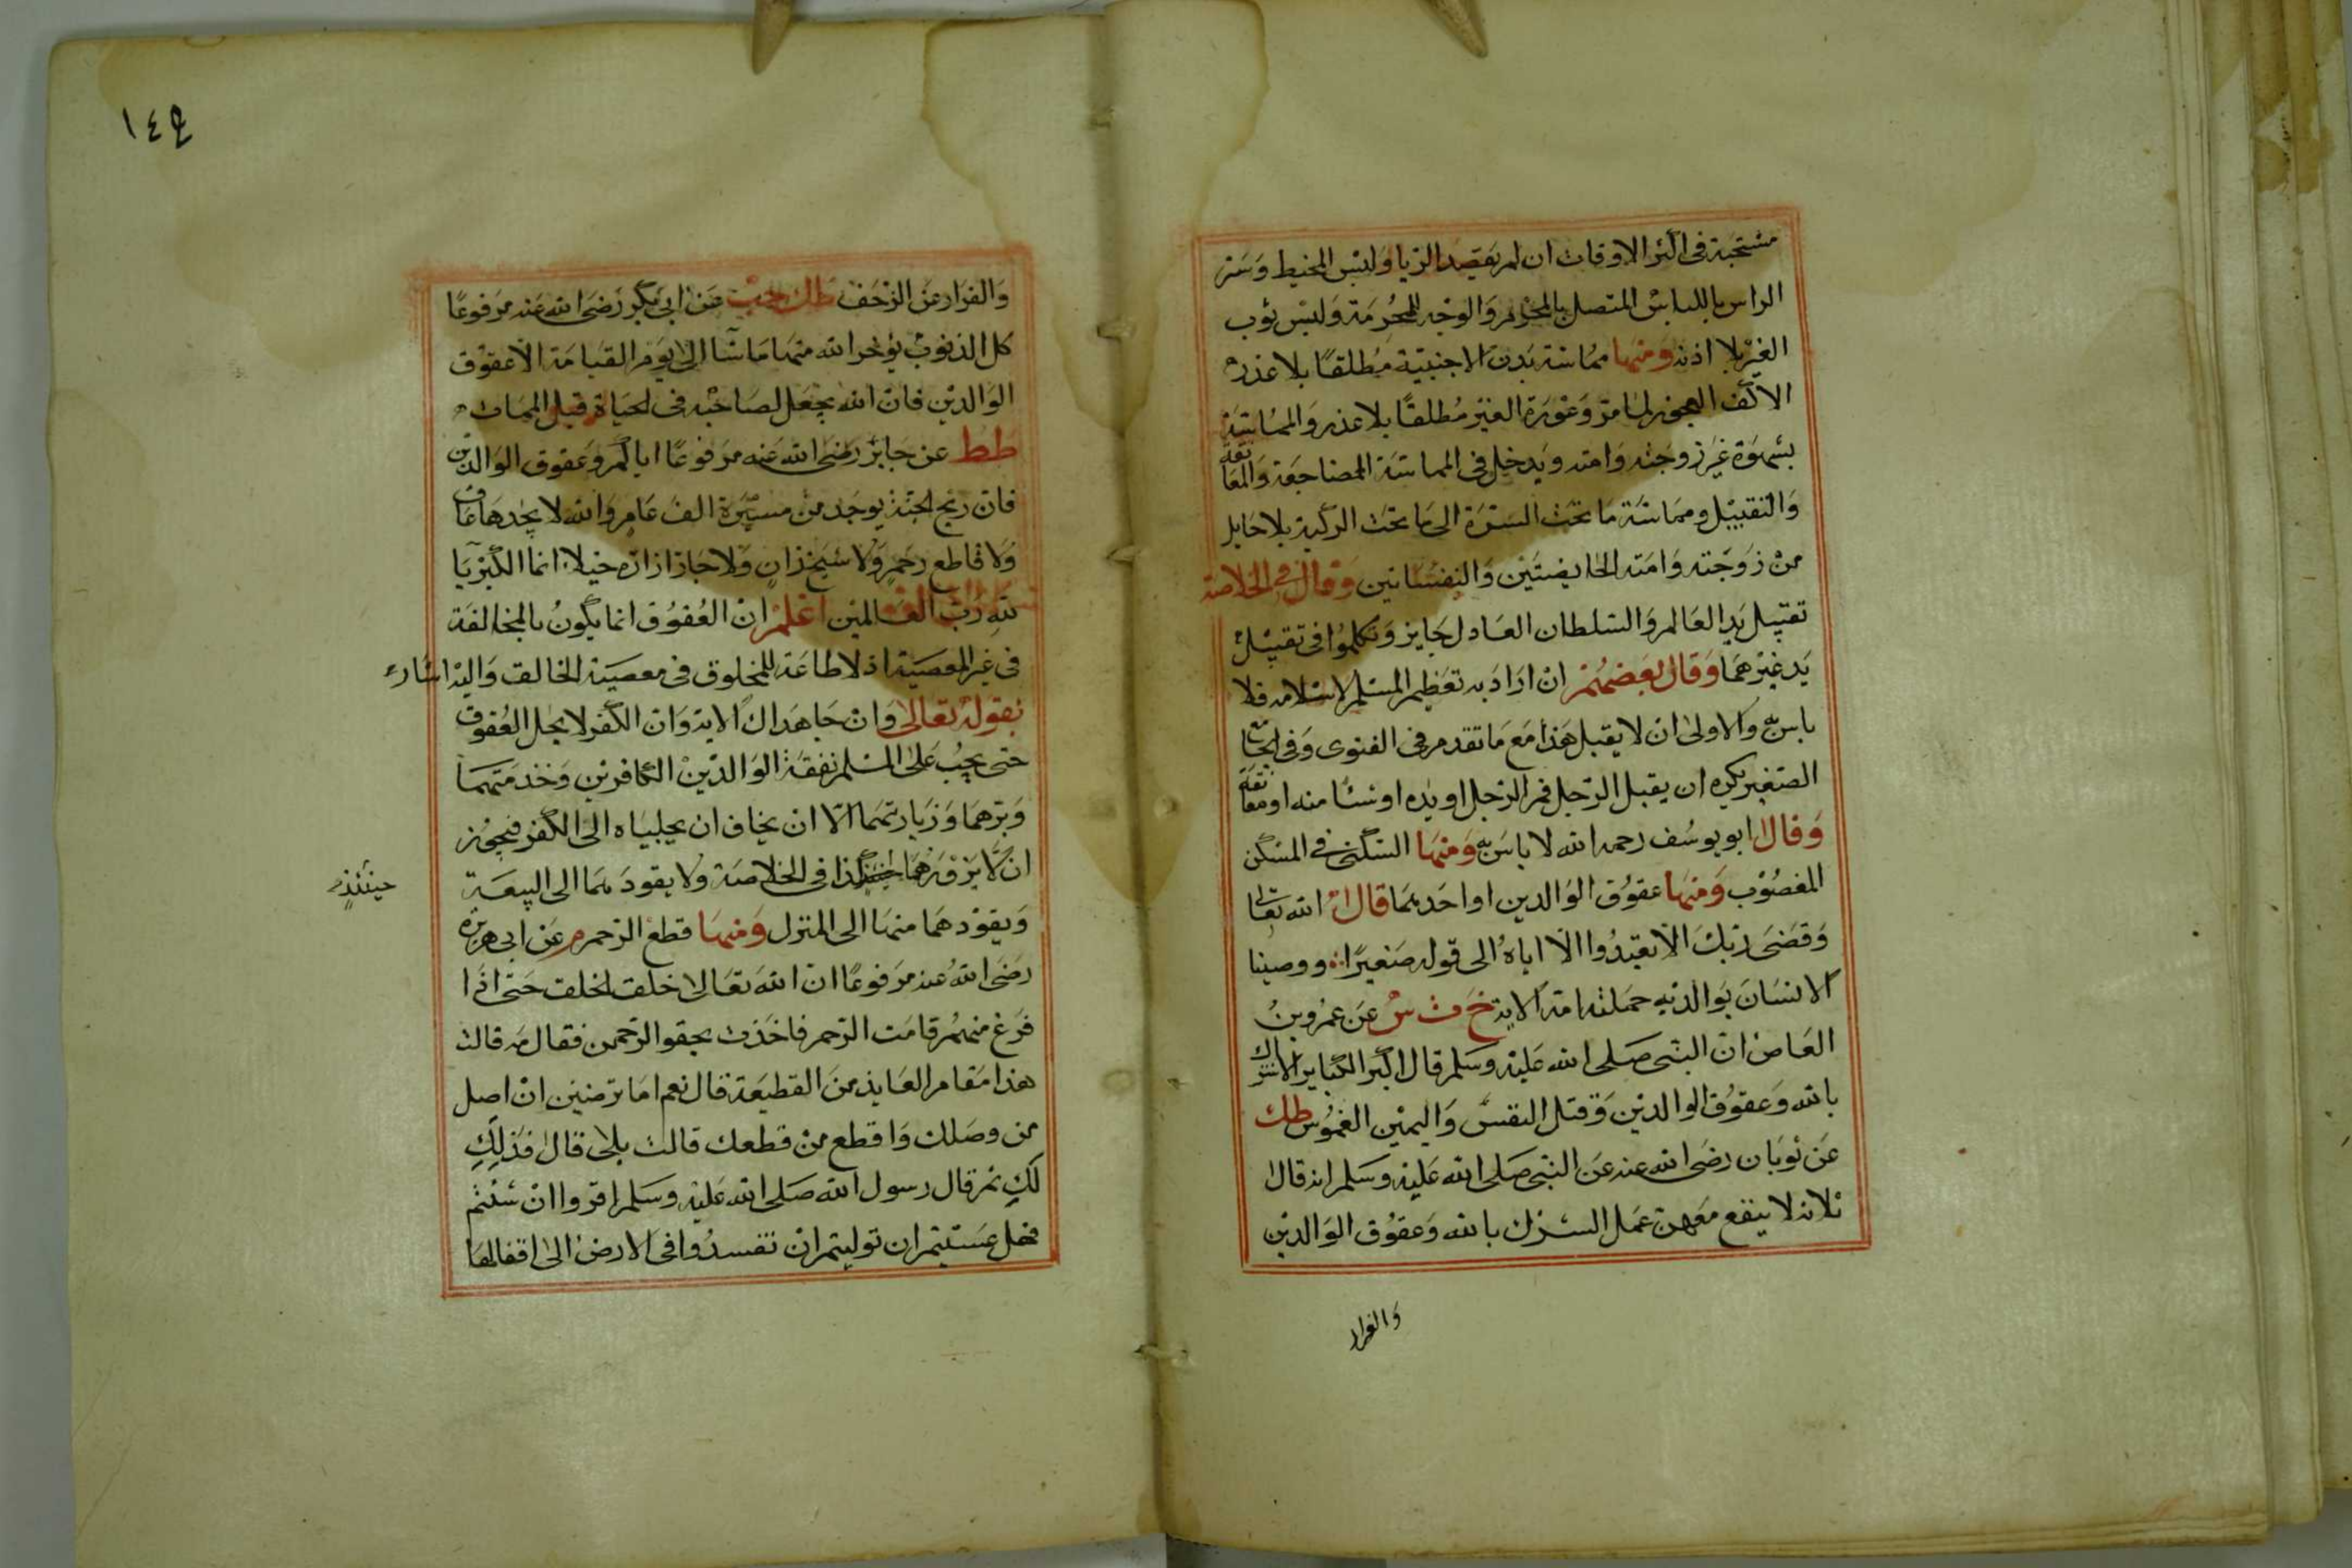 مستحبة فى اكثر الاوقات ان لم يقصد الريا ولبس المخيط وستر
الراس باللباس المتصل بالمحرم والوجه للمحرمة ولبس ثوب
الغير بلا اذنه ومنها مماسة بدن الاجنبية مطلقا بلا عذر
الا كف العجوز لما مر وعورة الغير مطلقا بلا عذر والمماسة
بشهوة غير زوجته وامته ويدخل فى المماسة المضاجعة والمعانقة
والتقبيل ومماسة ما تحت السرة الى ما تحت الركبة بلا حايل
من زوجته وامته الحايضتين والنفساتين وقال فى الخلاصة
تقبيل يد العالم والسلطان العادل جايز وتكلموا فى تقبيل
يد غيرهما وقال بعضهم ان اراد به تعظيم المسلم لاسلامه فلا
باس به والاولى ان لا يقبل هذا مع ما تقدم فى الفتوى وفى الجامع
الصغير يكره ان يقبل الرجل فم الرجل او يده او شئا منه او معانقة
وقال ابو يوسف رحمه الله لا باس به ومنها السكنى فى المسكن
المغصوب ومنها عقوق الوالدين او احدهما قال الله تعالى
وقضى ربك الا تعبدوا الا اياه الى قوله صغيرا ووصينا
الانسان بوالديه حملته امه الاية خ ت س عن عمرو بن
العاص ان النبى صلى الله عليه وسلم قال اكبر الكباير الاشراك
بالله وعقوق الوالدين وقتل النفس واليمين الغموس طك
عن ثوبان رضى الله عنه عن النبى صلى الله عليه وسلم انه قال
ثلاثة لا ينفع معهن عمل الشرك بالله وعقوق الوالدين
والفرار
١٤٩
والفرار عن الزحف طك حب عن ابى بكر رضى الله عنه مرفوعا
كل الذنوب يؤخر الله منها ما شا الى يوم القيامة الا عقوق
الوالدين فان الله يجعل لصاحبه فى الحياة قبل الممات
طط عن جابر رضى الله عنه مرفوعا اياكم وعقوق الوالدين
فان ريح الجنة يوجد من مسيرة الف عام والله لا يجدها عاق
ولا قاطع رحم ولا شيخ زان ولا جار ازاره خيلا انما الكبريا
لله رب العالمين اعلم ان العقوق انما يكون بالمخالفة
فى غير المعصية اذ لا طاعة للمخلوق فى معصية الخالق واليه اشار
بقوله تعالى وان جاهداك الاية وان الكفر لا يحل العقوق
حتى يجب على المسلم نفقة الوالدين الكافرين وخدمتهما
وبرهما وزيارتهما الا ان يخاف ان يجلباه الى الكفر فيجوز
ان لا يزورهما حينئذ كذا فى الخلاصة ولا يقود بهما الى البيعة
حينئذ
ويقودهما منها الى المنزل ومنها قطع الرحم م عن ابى هريرة
رضى الله عنه مرفوعا ان الله تعالى خلق الخلق حتى اذا
فرغ منهم قامت الرحم فاخذت بحقو الرحمن فقال مه قالت
هذا مقام العايذ من القطيعة قال نعم اما ترضين ان اصل
من وصلك واقطع من قطعك قالت بلى قال فذلك
لك ثم قال رسول الله صلى الله عليه وسلم اقروا ان شئتم
فهل عسيتم ان توليتم ان تفسدوا فى الارض الى اقفالها